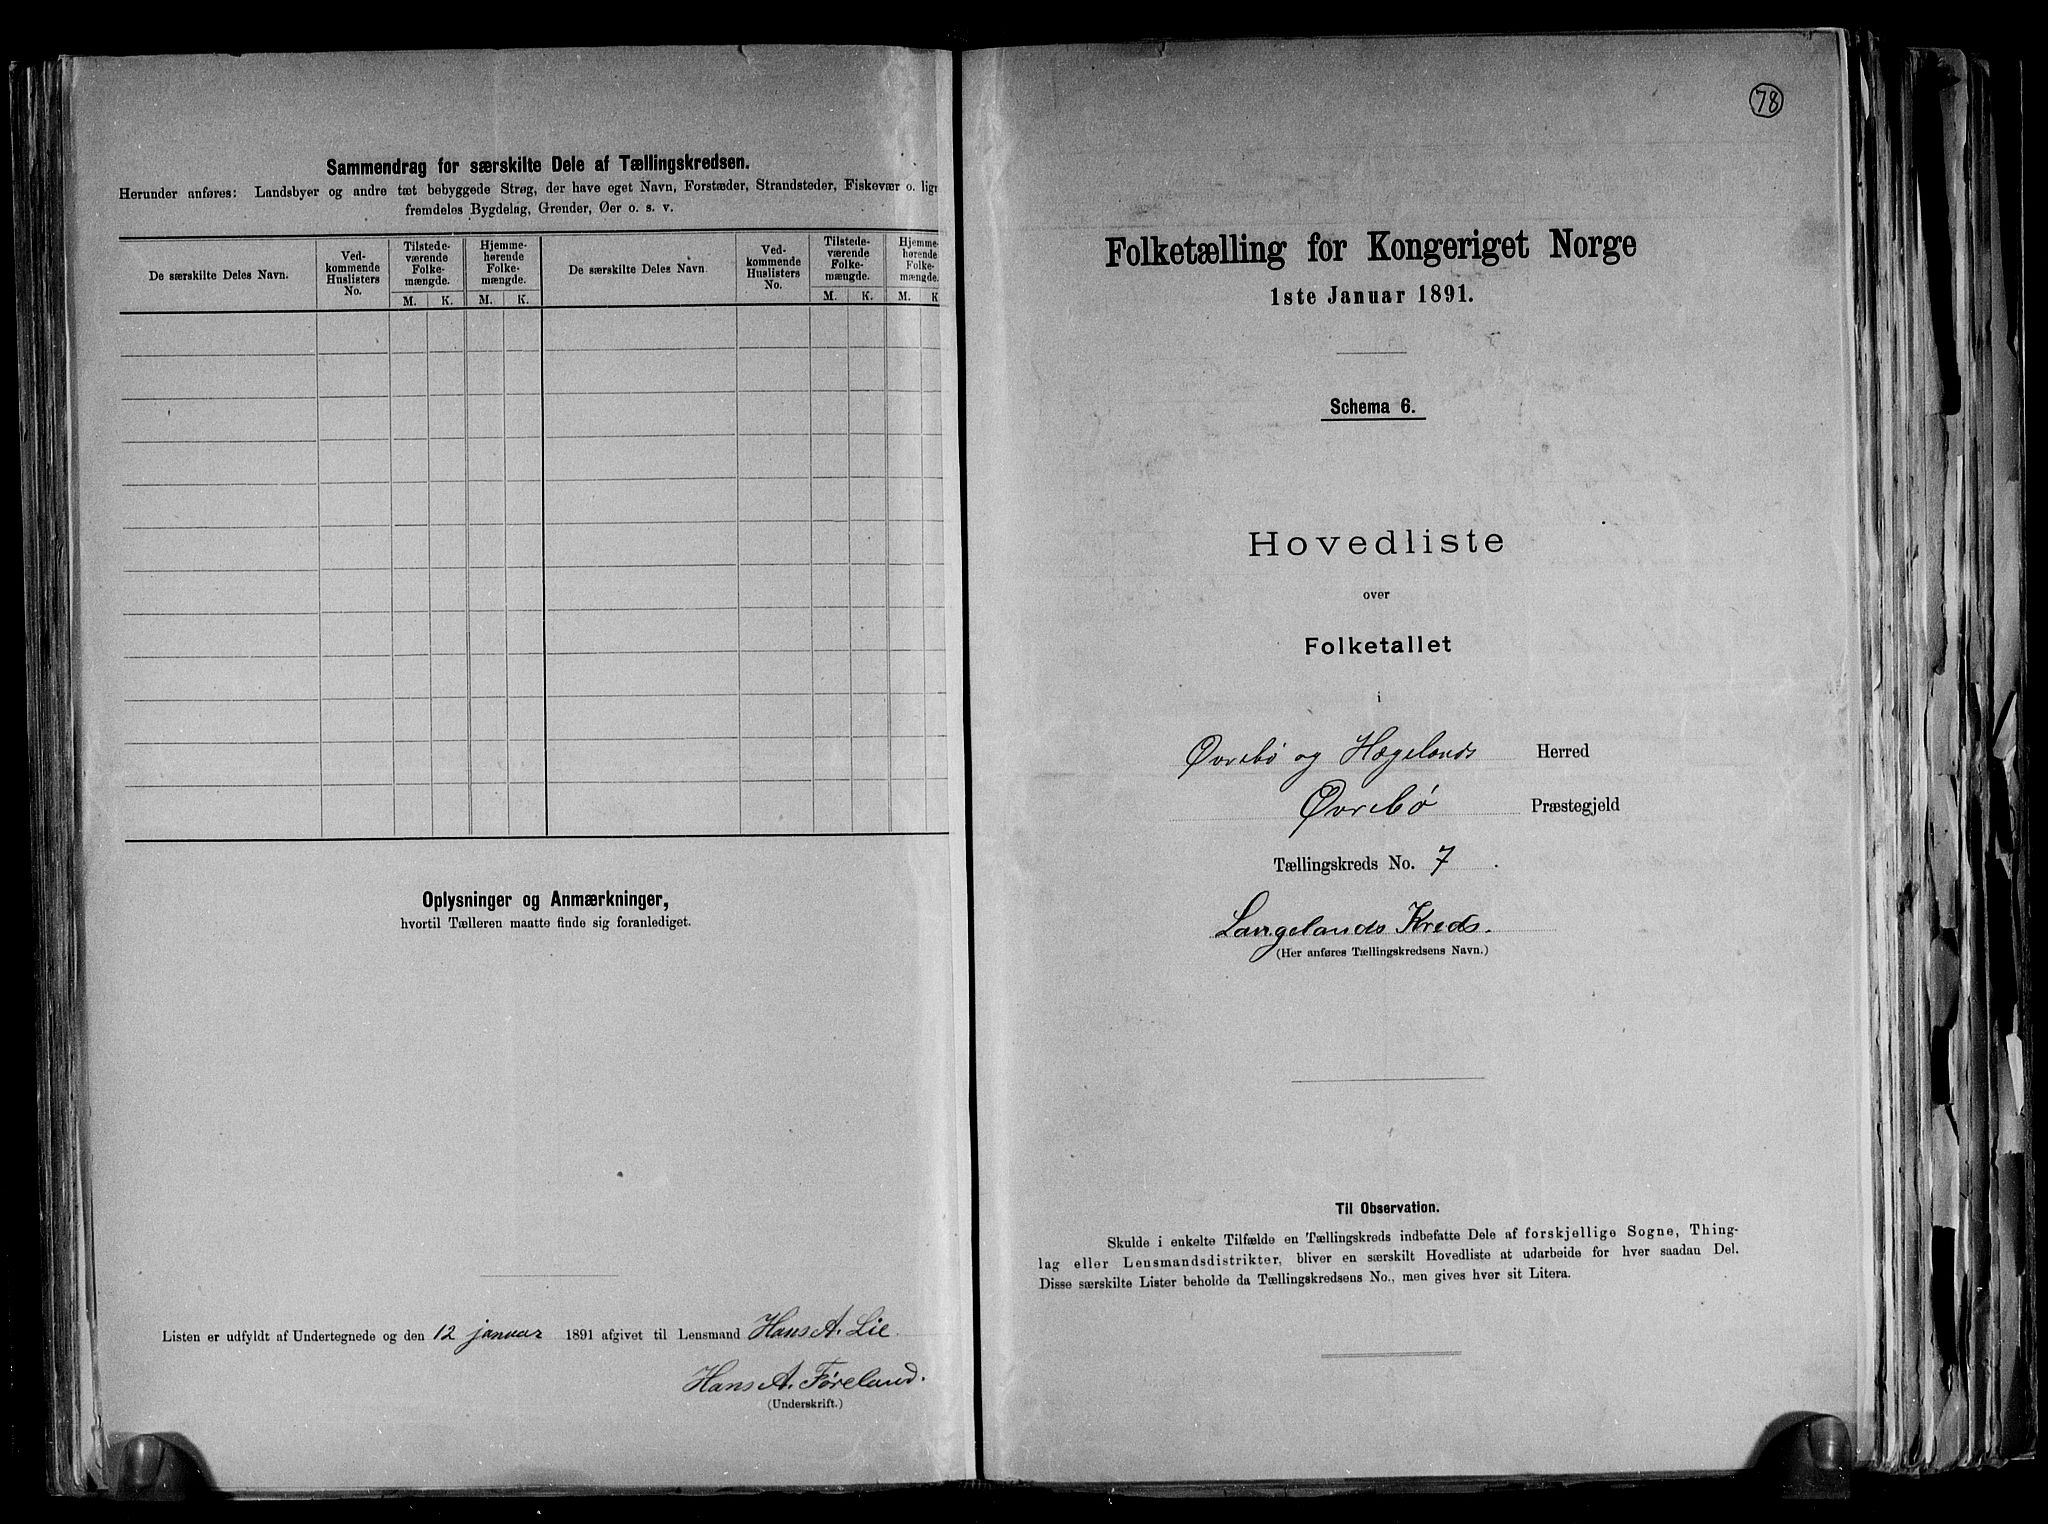 Sammendrag for særskilte Dele af Tællingskredsen.
Herunder anføres: Landsbyer og andre tæt bebyggede Strøg, der have eget Navn, Forstæder, Strandsteder, Fiskevær o. lign
fremdeles Bygdelag, Grender, Øer o. s. v.
De særskilte Deles Navn.
Ved-
kommende
Huslisters
No.
Tilstede-
værende
Folke-
mængde.
Hjemme-
hørende
Folke-
mængde.
De særskilte Deles Navn.
Ved-
kommende
Huslisters
No.
Tilstede-
værende
Folke-
mængde.
Hjemme-
hørende
Folke-
mængde.
M. K. M. K. M. K. M. K
Oplysninger og Anmærkninger,
hvortil Tælleren maatte finde sig foranlediget.
Listen er udfyldt af Undertegnede og den 12 januar 1891 afgivet til Lensmand Hans A. Lie.
Hans A. Føreland.
(Underskrift.)
78
Folketælling for Kongeriget Norge
1ste Januar 1891.
Schema 6.
Hovedliste
over
Folketallet
i
Øvrebø og Hægelands Herred
Øvrebø Præstegjeld
Tællingskreds No. 7.
Langelands Kreds.
(Her anføres Tællingskredsens Navn.)
Til Observation.
Skulde i enkelte Tilfælde en Tællingskreds indbefatte Dele af forskjellige Sogne, Thing-
lag eller Lensmandsdistrikter, bliver en særskilt Hovedliste at udarbeide for hver saadan Del.
Disse særskilte Lister beholde da Tællingskredsens No., men gives hver sit Litera.